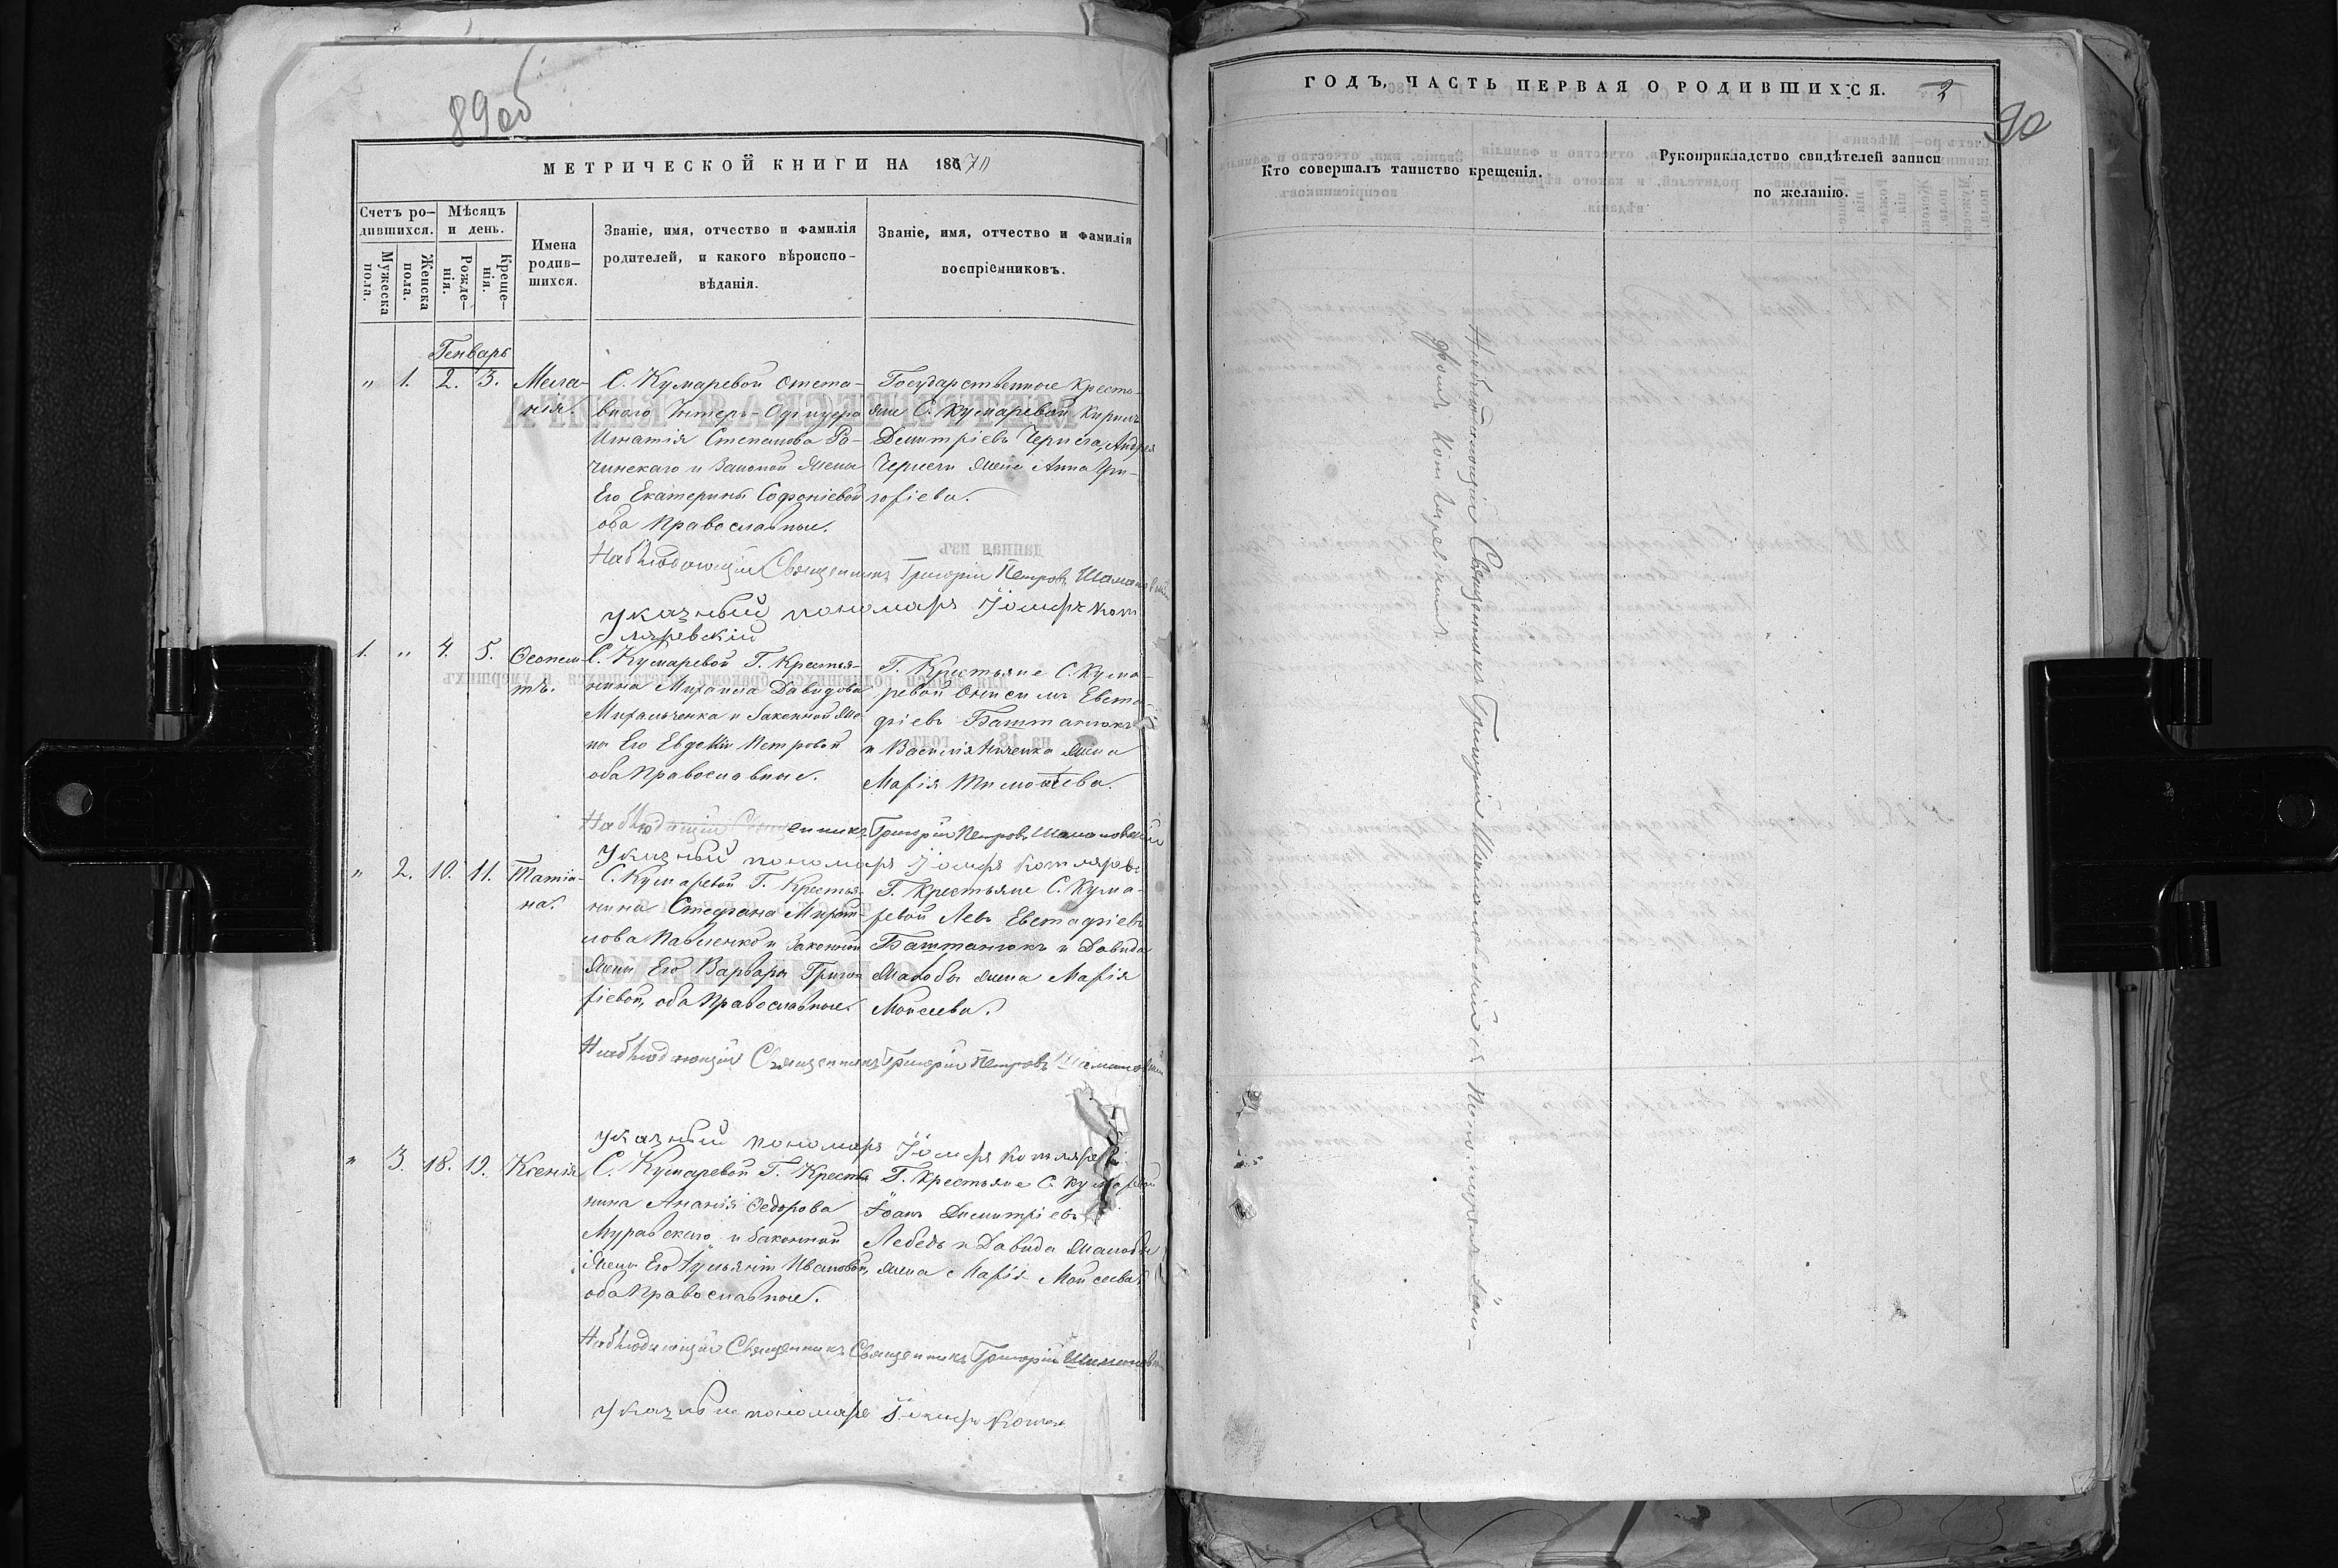 89об
МЕТРИЧЕСКОЙ КНИГИ НА 1870
Счетъ ро-
дившихся.
Мужеска
пола.
Женска
пола.
Мѣсяцъ
и день.
Рожде-
нія.
Креще-
нія.
Имена
родив-
шихся.
Званіе, имя, отчество и фамилія
родителей, и какого вѣроиспо-
вѣданія.
Званіе, имя, отчество и фамилія
воспріемниковъ.
Генварь
" 1. 2. 3.
Мела-
нія.
С. Кумаревой Отста-
внаго Унтеръ-Офицера
Игнатія Степанова
и Законной Жены
Его Екатерины Софоніевой
оба Православные.
Государственные Кресть-
яне С. Кумаревой Кирилъ
Димитріевъ Черпега, Андрея
Черпеги жена Анна Гри-
горіева.
Наблюдающій Священникъ Григорій Петровъ
указный пономарь Іосифъ Кот
ляревскій
1. " 4. 5.
Ѳеопем
птъ.
С. Кумаревой Г. Крестья-
нина Михаила Давидова
Михальченка и Законной Же-
ны Его Евдокіи Петровой
оба Православные.
Г. Крестьяне С. Кума-
ревой Онисимъ Евста-
фіевъ Баштанюкъ
и Василія жена
Марія Тимоѳеева.
Наблюдающій Священникъ Григорій Петровъ
Указный пономарь Іосифъ Котляревс
" 2. 10. 11.
Татіа-
на.
С. Кумаревой Г. Крестья-
нина Стефана
лова Павленко и Законной
Жены Его Варвары Григо
ріевой, оба Православные.
Г. Крестьяне С. Кума-
ревой Левъ Евстафіевъ
Баштанюкъ и Давида
Жалобы жена Марія
Мойсеева.
Наблюдающій Священникъ Григорій Петровъ
указный пономарь Іосифъ Котляре
" 3. 18. 19.
Ксенія
С. Кумаревой Г. Крестья
нина Ананія Ѳедорова
Муравскаго и Законной
Жены Его Ивановой,
оба Православные.
Г. Крестьяне С. Кумаревой
Іоанъ Димитріевъ
Лебедь и Давида Жалобы
жена Марія Мойсеева.
Наблюдающій Священникъ Священникъ Григорій
Указный пономарь Іосифъ Котля
ГОДЪ, ЧАСТЬ ПЕРВАЯ О РОДИВШИХСЯ.
2
90
Кто совершалъ таинство крещенія.
Рукоприкладство свидѣтелей записи
по желанію.
Наблюдающій Священникъ Григорій